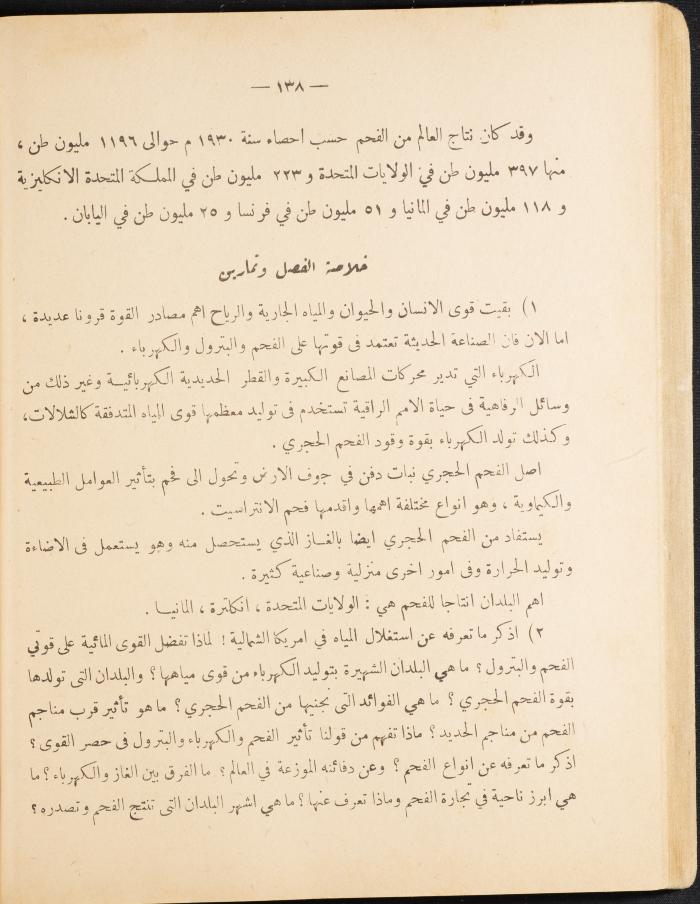 — ١٣٨ —
وقد كان نتاج العالم من الفحم حسب احصاء سنة ١٩٣٠ م حوالى ١١٩٦ مليون طن ،
منها ٣٩٧ مليون طن في الولايات المتحدة و ٢٢٣ مليون طن في المملكة المتحدة الانكليزية
و ١١٨ مليون طن في المانيا و ٥١ مليون طن في فرنسا و ٢٥ مليون طن في اليابان .
خلاصة الفصل وتمارين
١) بقيت قوى الانسان والحيوان والمياه الجارية والرياح اهم مصادر القوة قرونا عديدة ،
اما الان فان الصناعة الحديثة تعتمد فى قوتها على الفحم والبترول والكهرباء .
الكهرباء التي تدير محركات المصانع الكبيرة والقطر الحديدية الكهربائية وغير ذلك من
وسائل الرفاهية فى حياة الامم الراقية تستخدم فى توليد معظمها قوى المياه المتدفقة كالشلالات،
وكذلك تولد الكهرباء بقوة وقود الفحم الحجري .
اصل الفحم الحجري نبات دفن في جوف الارض وتحول الى فحم بتأثير العوامل الطبيعية
والكيماوية ، وهو انواع مختلفة اهمها واقدمها فحم الانتراسيت .
يستفاد من الفحم الحجري ايضا بالغاز الذي يستحصل منه وهو يستعمل فى الاضاءة
وتوليد الحرارة وفى امور اخرى منزلية وصناعية كثيرة .
اهم البلدان انتاجا للفحم هي : الولايات المتحدة ، انكلترة ، المانيا .
٢) اذكر ما تعرفه عن استغلال المياه في امريكا الشمالية ! لماذا تفضل القوى المائية على قوتي
الفحم والبترول ؟ ما هي البلدان الشهيرة بتوليد الكهرباء من قوى مياهها ؟ والبلدان التى تولدها
بقوة الفحم الحجري ؟ ما هي الفوائد التى نجنيها من الفحم الحجري ؟ ما هو تأثير قرب مناجم
الفحم من مناجم الحديد ؟ ماذا تفهم من قولنا تأثير الفحم والكهرباء والبترول فى حصر القوى ؟
اذكر ما تعرفه عن انواع الفحم ؟ وعن دفائنه الموزعة في العالم ؟ ما الفرق بين الغاز والكهرباء ؟ ما
هي ابرز ناحية في تجارة الفحم وماذا تعرف عنها ؟ ما هي اشهر البلدان التى تنتج الفحم وتصدره ؟